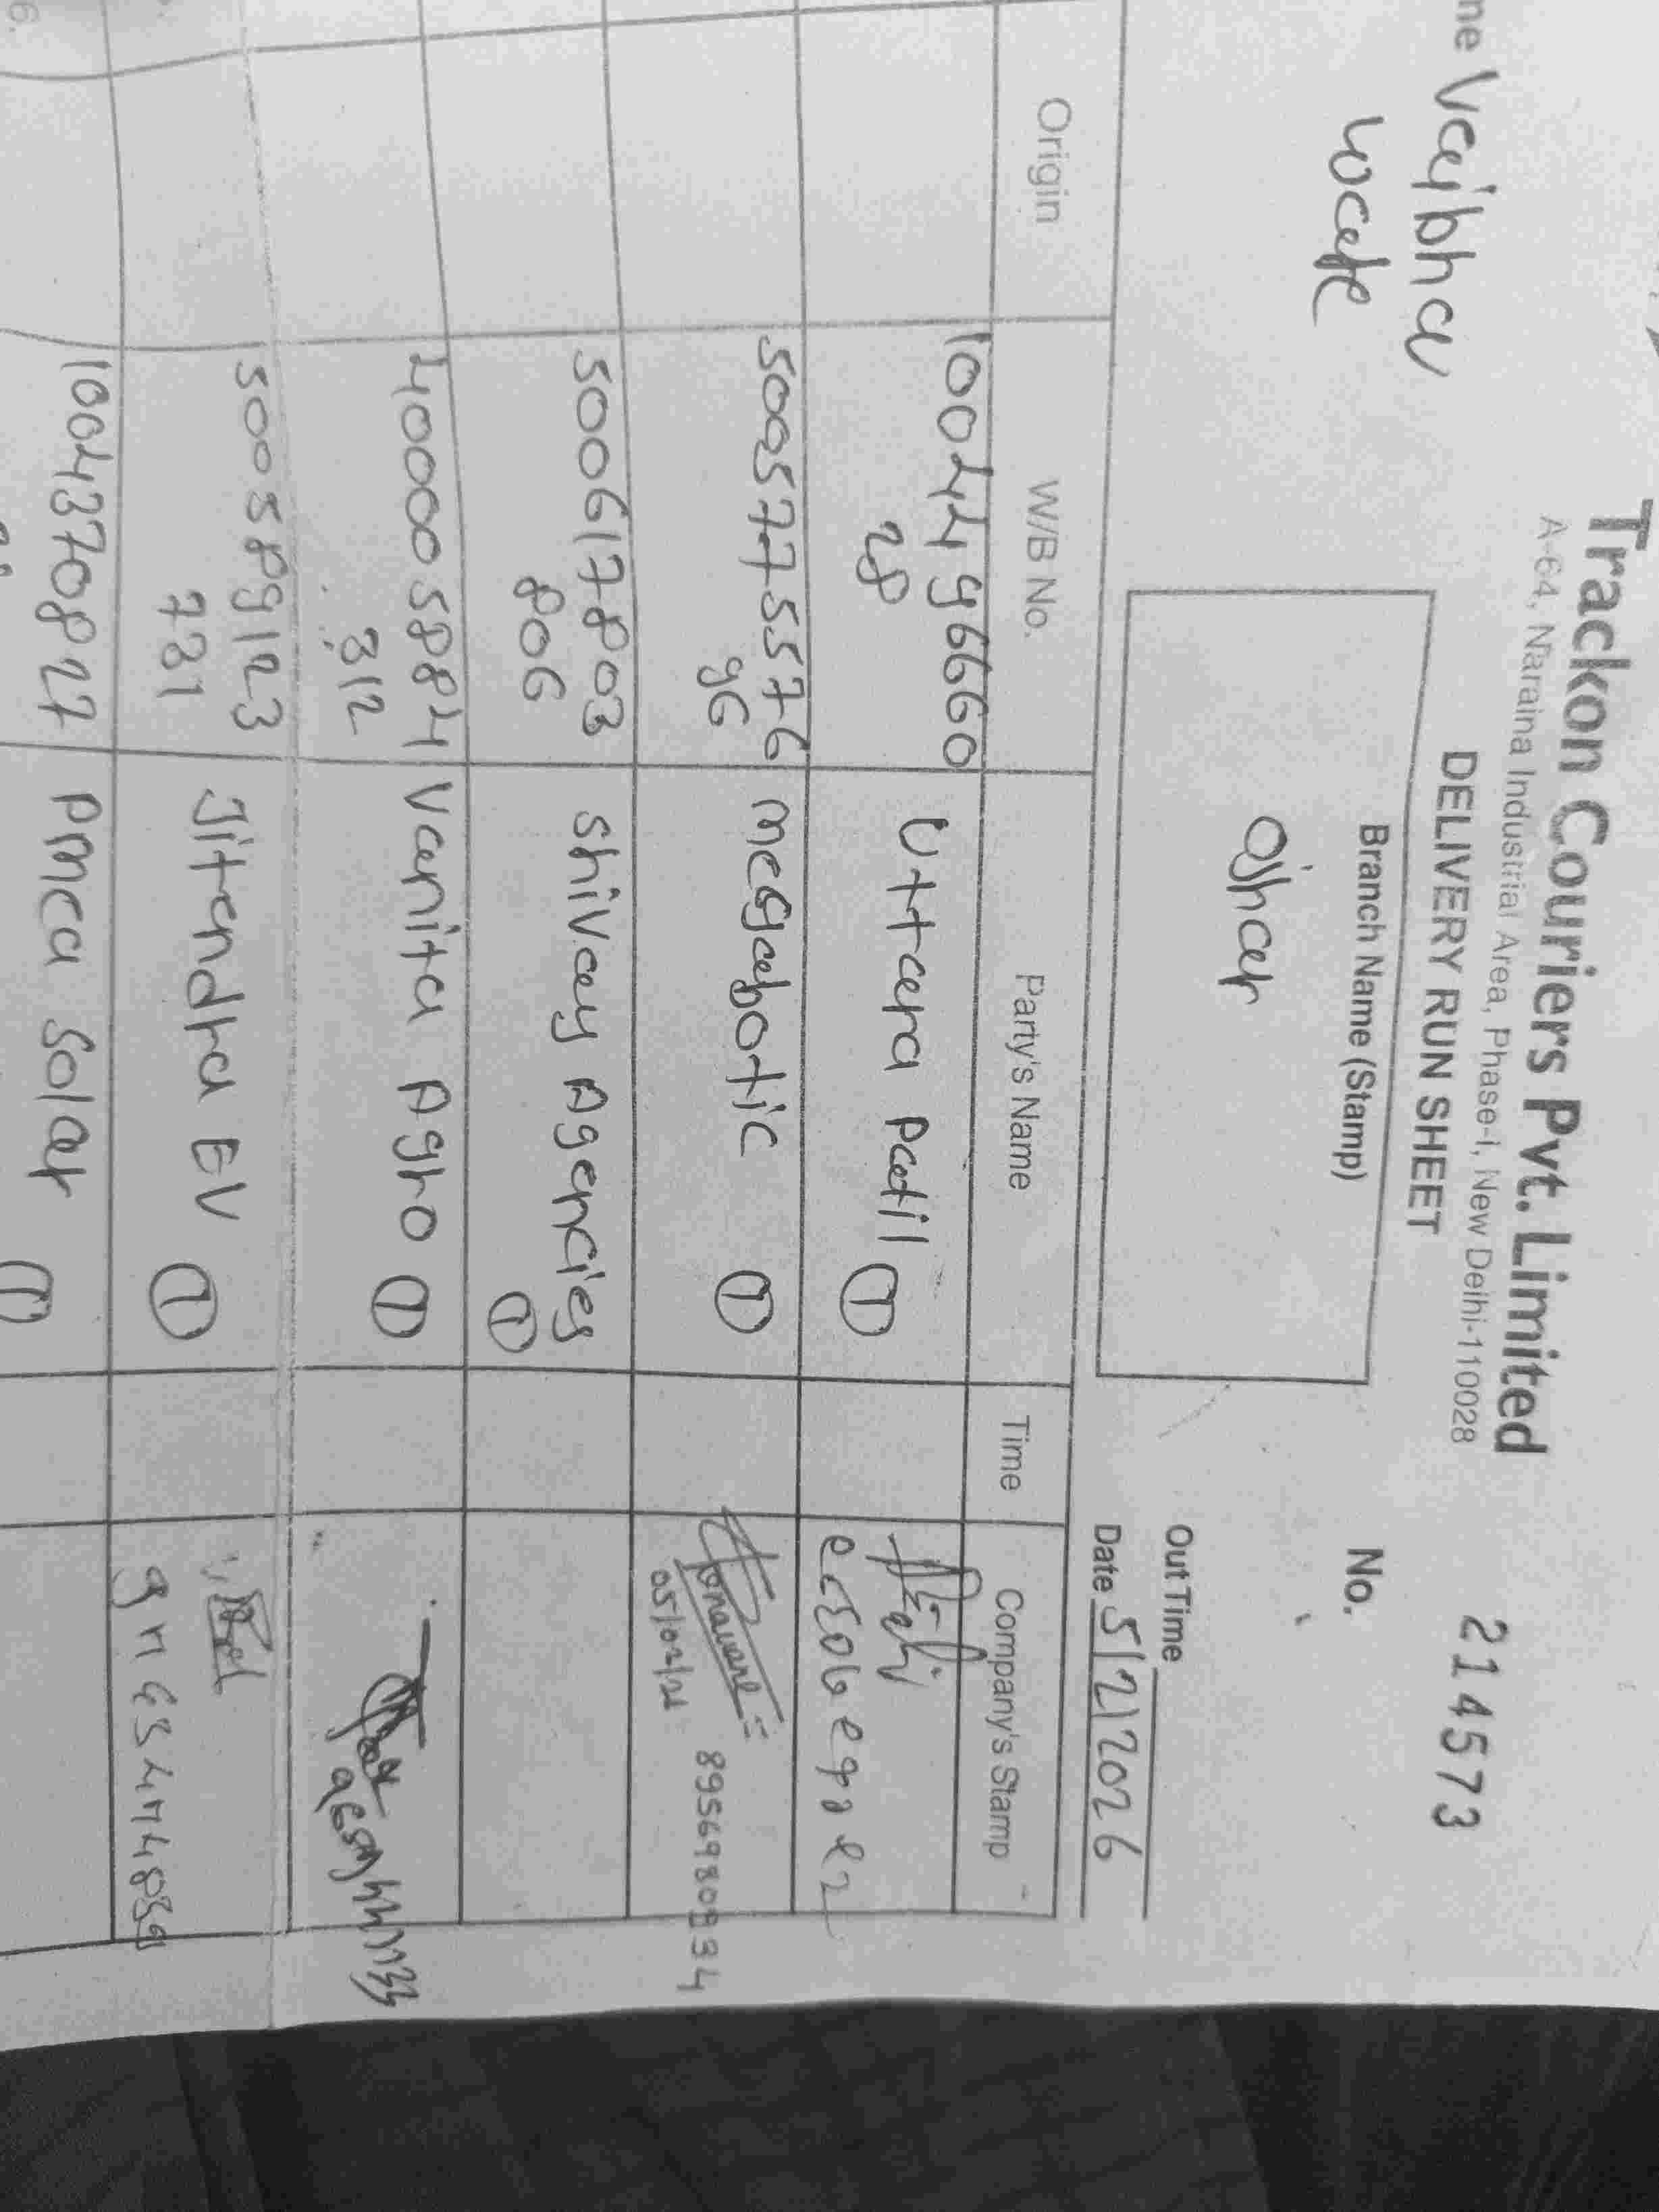 Trackon Couriers Pvt. Limited
A-64, Naraina Industrial Area, Phase-I, New Delhi-110028
DELIVERY RUN SHEET
214573
No.
ne Vaibhav
Branch Name (Stamp)
ojhar
Out Time
Date 5/2/2026
Origin W/B No. Party's Name Time Company's Stamp
1004496660
28
Uttara Patil 1
5005775576
96
megabotic 1
05/02/26
8956980934
500617803
806
shivay Agencies
1
400005884
312
Vanita Agro 1
500589123
781
Jitendra EV 1
1004370827
Pmca Solar 1